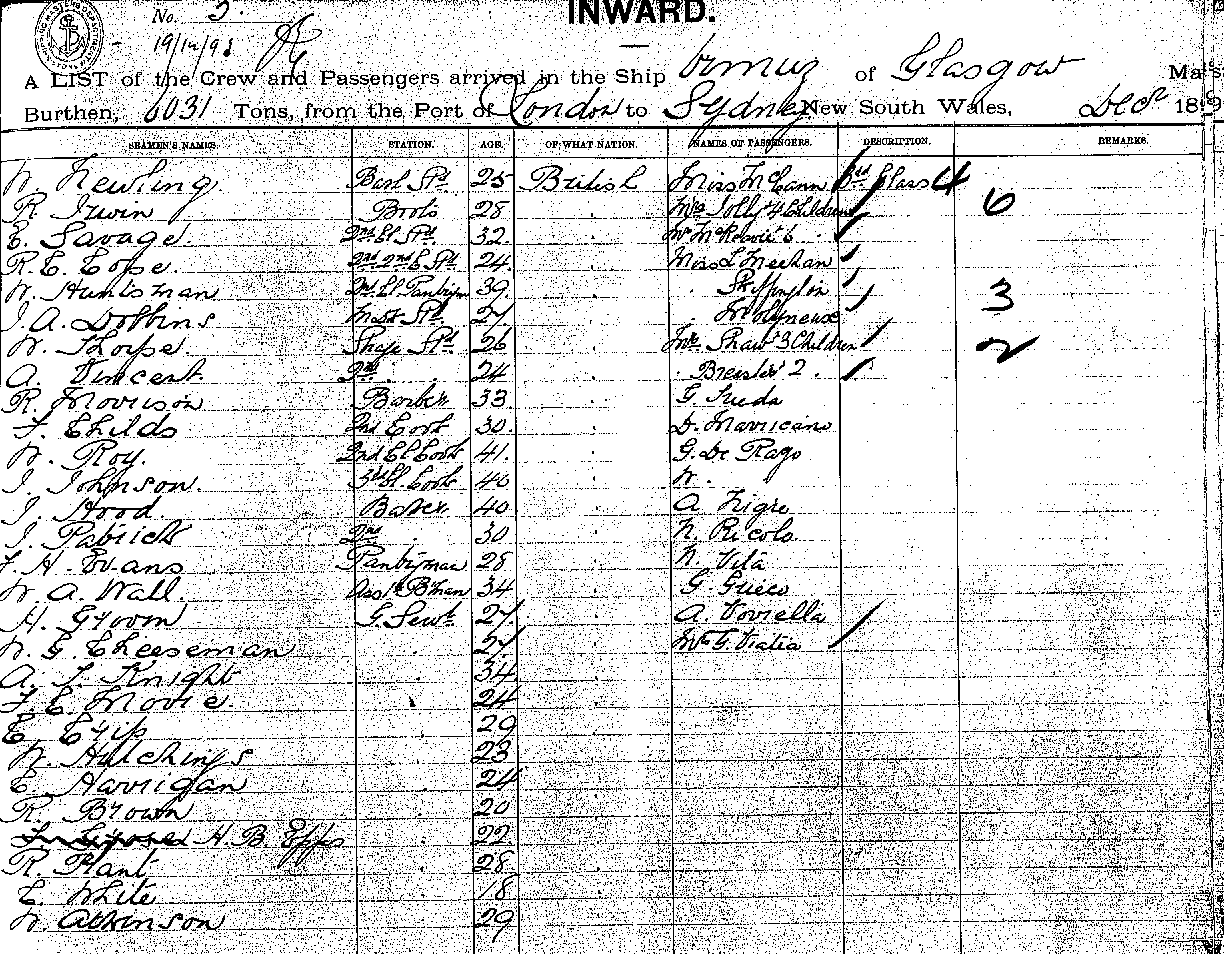 No. 3.
INWARD.
19/12/93
A LIST of the Crew and Passengers arrived in the Ship Ormuz of Glasgow
Burthen, 6031 Tons, from the Port of London to Sydney New South Wales, Decr 189
SEAMEN'S NAMES. STATION. AGE. OF WHAT NATION. NAMES OF PASSENGERS. DESCRIPTION. REMARKS.
W. Newling 25 British Miss McCann 3rd Class 4
R. Irwin Boots 28 Mrs Jolly & 4 Children 6
E. Savage. 2nd Cl Std 32.
R. E. Cope. 24. Miss L Meehan
W. Huntsman 2nd Cl Pantryman 39. Skeffington 3
J. A. Dobbins Mess Std 27 Molyneux
W. Thorpe 26 Mrs Shaw 3 Children 2
A. Vincent. 2nd 24 Brewster 2.
R. Morrison Barber. 33.
F. Childs 2nd Cook 30. D. Marricano
W. Roy. 2nd Cl Cook 41. G. De Rago
J. Johnson. 3rd Cl Cook 40 N.
J. Hood Baker. 40 A. Nigro
J. Patrick 2nd 30 N. Ricolo
F. H. Evans Pantryman 28 N. Vita
W. A. Wall. 34 G. Grieco
H. Groom G. Servt. 27. A. Voviella
W. G. Cheeseman 27
A. L. Knight 34
F. E. Movie. 24
E. Gyip 29
W. Hutchings 23
E. Harrigan 24
R. Brown 20
H. B. Epps 22
R. Plant 28
E. White 18
W. Atkinson 29